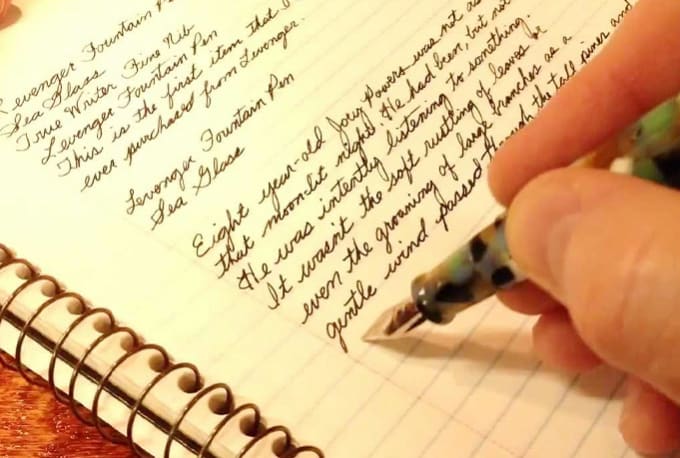 Levenger Fountain Pe
Sea Glass
True Writer Fine Nib
Levenger Fountain Pen
This is the first item that I
ever purchased from Levenger.
Levenger Fountain Pen
Sea Glass
Eight year-old Joey Powers was not as
that moon-lit night. He had been, but not
He was intently listening to something.
It wasn't the soft rustling of leaves or
even the groaning of large branches as a
gentle wind passed through the tall pines and